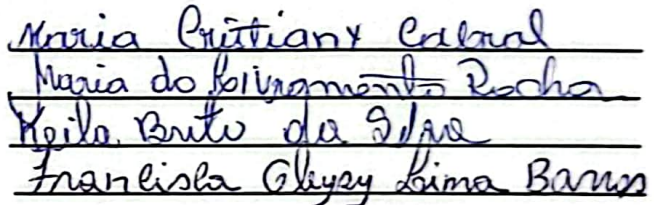 Maria Cristiany Cabral
Maria do Livramento Rocha
Keila Brito da Silva
Francisca Gleyzy Lima Barros